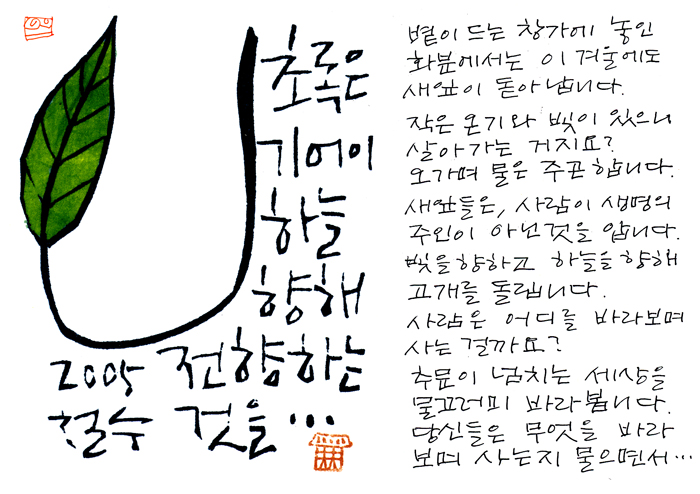 초록은
기어이
하늘
향해
전향하는
것을...
2005
철수
볕이 드는 창가에 놓인
화분에서는 이 겨울에도
새잎이 돋아납니다.
작은 온기와 빛이 있으니
살아가는 거지요?
오가며 물은 주곤 합니다.
새잎들은, 사람이 생명의
주인이 아닌것을 압니다.
빛을 향하고 하늘을 향해
고개를 돌립니다.
사람은 어디를 바라보며
사는 걸까요?
추문이 넘치는 세상을
물끄러미 바라봅니다.
당신들은 무엇을 바라
보며 사는지 물으면서...